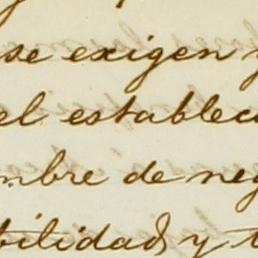 se exigen y
el establec
mbre de neg
bilidad, y t